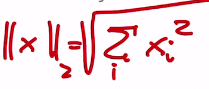 ||x||₂ = √(∑ᵢ xᵢ²)